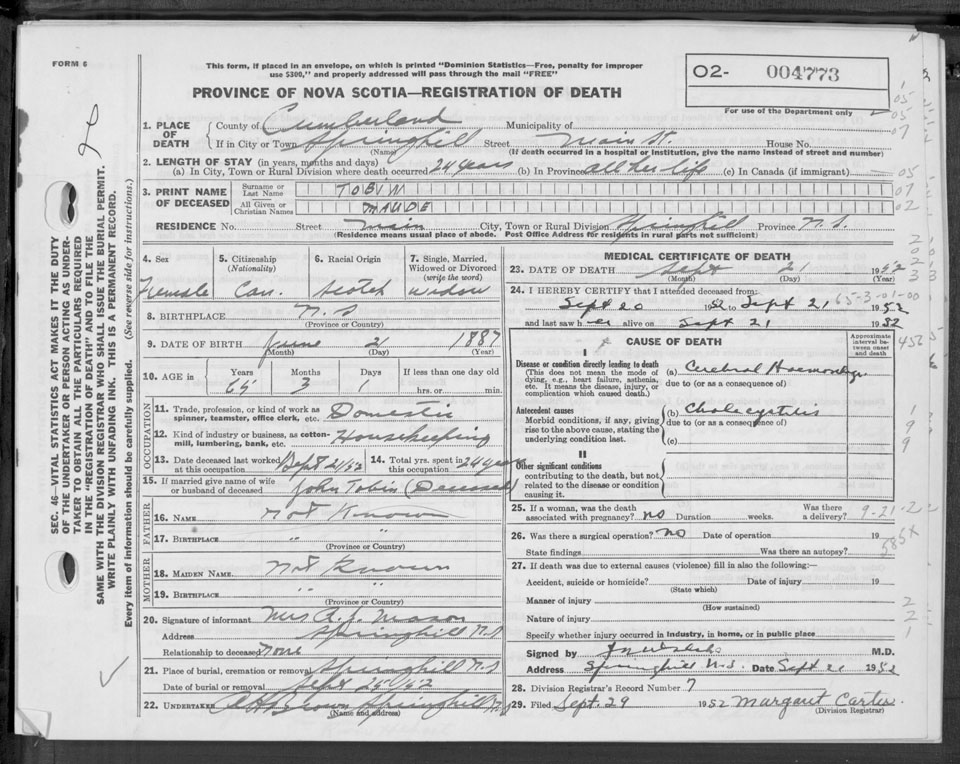 FORM 6
This form, if placed in an envelope, on which is printed "Dominion Statistics—Free, penalty for improper
use $300," and properly addressed will pass through the mail "FREE"
PROVINCE OF NOVA SCOTIA—REGISTRATION OF DEATH
O2- 004773
For use of the Department only
SEC. 46 - VITAL STATISTICS ACT MAKES IT THE DUTY
OF THE UNDERTAKER OR PERSON ACTING AS UNDER-
TAKER TO OBTAIN ALL THE PARTICULARS REQUIRED
IN THE "REGISTRATION OF DEATH" AND TO FILE THE
SAME WITH THE DIVISION REGISTRAR WHO SHALL ISSUE THE BURIAL PERMIT.
WRITE PLAINLY WITH UNFADING INK. THIS IS A PERMANENT RECORD.
Every item of information should be carefully supplied. (See reverse side for instructions.)
1. PLACE OF DEATH
County of Cumberland Municipality of
If in City or Town Springhill Street Main St. House No.
(Name) (If death occurred in a hospital or institution, give the name instead of street and number)
2. LENGTH OF STAY (in years, months and days)
(a) In City, Town or Rural Division where death occurred 24 years (b) In Province all her life (c) In Canada (if immigrant)
3. PRINT NAME OF DECEASED
Surname or Last Name TOBIN
All Given or Christian Names MAUDE
RESIDENCE No. Street main City, Town or Rural Division Springhill Province N.S.
(Residence means usual place of abode. Post Office Address for residents in rural parts not sufficient)
4. Sex
Female
5. Citizenship (Nationality)
Can.
6. Racial Origin
Scotch
7. Single, Married, Widowed or Divorced (write the word)
widow
8. BIRTHPLACE N.S
(Province or Country)
9. DATE OF BIRTH June 21 1887
(Month) (Day) (Year)
10. AGE in Years Months Days If less than one day old
65 3 1 hrs. or min.
OCCUPATION
11. Trade, profession, or kind of work as spinner, teamster, office clerk, etc. Domestic
12. Kind of industry or business, as cotton-mill, lumbering, bank, etc. Housekeeping
13. Date deceased last worked at this occupation Sept 21/52
14. Total yrs. spent in this occupation 24 years
15. If married give name of wife or husband of deceased John Tobin (Deceased)
FATHER
16. NAME Not Known
17. BIRTHPLACE " "
(Province or Country)
MOTHER
18. MAIDEN NAME Not Known
19. BIRTHPLACE " "
(Province or Country)
20. Signature of informant Mrs A. J. Mason
Address Springhill N.S
Relationship to deceased None
21. Place of burial, cremation or removal Springhill N.S
Date of burial or removal Sept 25/52
22. UNDERTAKER Brown Springhill N.S
(Name and address)
MEDICAL CERTIFICATE OF DEATH
23. DATE OF DEATH Sept 21 1952
(Month) (Day) (Year)
24. I HEREBY CERTIFY that I attended deceased from:
Sept 20 1952 to Sept 21 1952
65-3-01-00
and last saw her alive on Sept 21 1952
CAUSE OF DEATH
Approximate interval between onset and death
I
Disease or condition directly leading to death
(This does not mean the mode of dying, e.g., heart failure, asthenia, etc. It means the disease, injury, or complication which caused death.)
(a) Cerebral Haemorrhage
due to (or as a consequence of)
Antecedent causes
Morbid conditions, if any, giving rise to the above cause, stating the underlying condition last.
(b) Cholecystitis
due to (or as a consequence of)
(c)
II
Other significant conditions
contributing to the death, but not related to the disease or condition causing it.
25. If a woman, was the death associated with pregnancy? no Duration weeks. Was there a delivery?
9-21-2
26. Was there a surgical operation? no Date of operation 19
585X
State findings Was there an autopsy?
27. If death was due to external causes (violence) fill in also the following:—
Accident, suicide or homicide? Date of injury 19
(State which)
Manner of injury
(How sustained)
Nature of injury
Specify whether injury occurred in industry, in home, or in public place
Signed by M.D.
Address Springhill N.S. Date Sept 21 1952
28. Division Registrar's Record Number 7
29. Filed Sept. 29 1952 Margaret Carter
(Division Registrar)